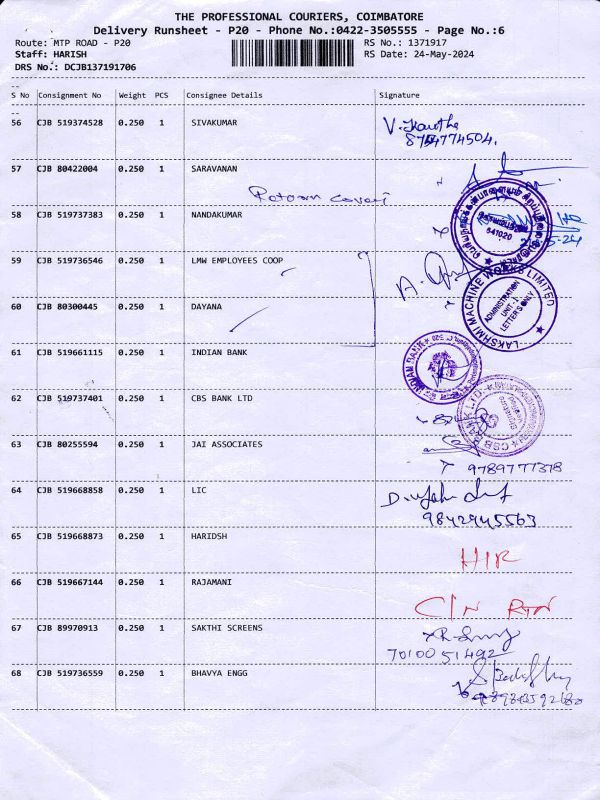 THE PROFESSIONAL COURIERS, COIMBATORE
Delivery Runsheet - P20 - Phone No.:0422-3505555 - Page No.:6
Route: MTP ROAD - P20 RS No.: 1371917
Staff: HARISH RS Date: 24-May-2024
DRS No.: DCJB137191706
S No Consignment No Weight PCS Consignee Details Signature
56 CJB 519374528 0.250 1 SIVAKUMAR
57 CJB 80422004 0.250 1 SARAVANAN
58 CJB 519737383 0.250 1 NANDAKUMAR
641020
59 CJB 519736546 0.250 1 LMW EMPLOYEES COOP
LAKSHMI MACHINE WORKS LIMITED
ADMINISTRATION
UNIT-I
LETTERS ONLY
60 CJB 80300445 0.250 1 DAYANA
61 CJB 519661115 0.250 1 INDIAN BANK
INDIAN BANK
62 CJB 519737401 0.250 1 CBS BANK LTD
CSB BANK LTD.
63 CJB 80255594 0.250 1 JAI ASSOCIATES
9789777378
64 CJB 519668858 0.250 1 LIC
9842945563
65 CJB 519668873 0.250 1 HARIDSH
66 CJB 519667144 0.250 1 RAJAMANI
C/N RTN
67 CJB 89970913 0.250 1 SAKTHI SCREENS
7010051492
68 CJB 519736559 0.250 1 BHAVYA ENGG